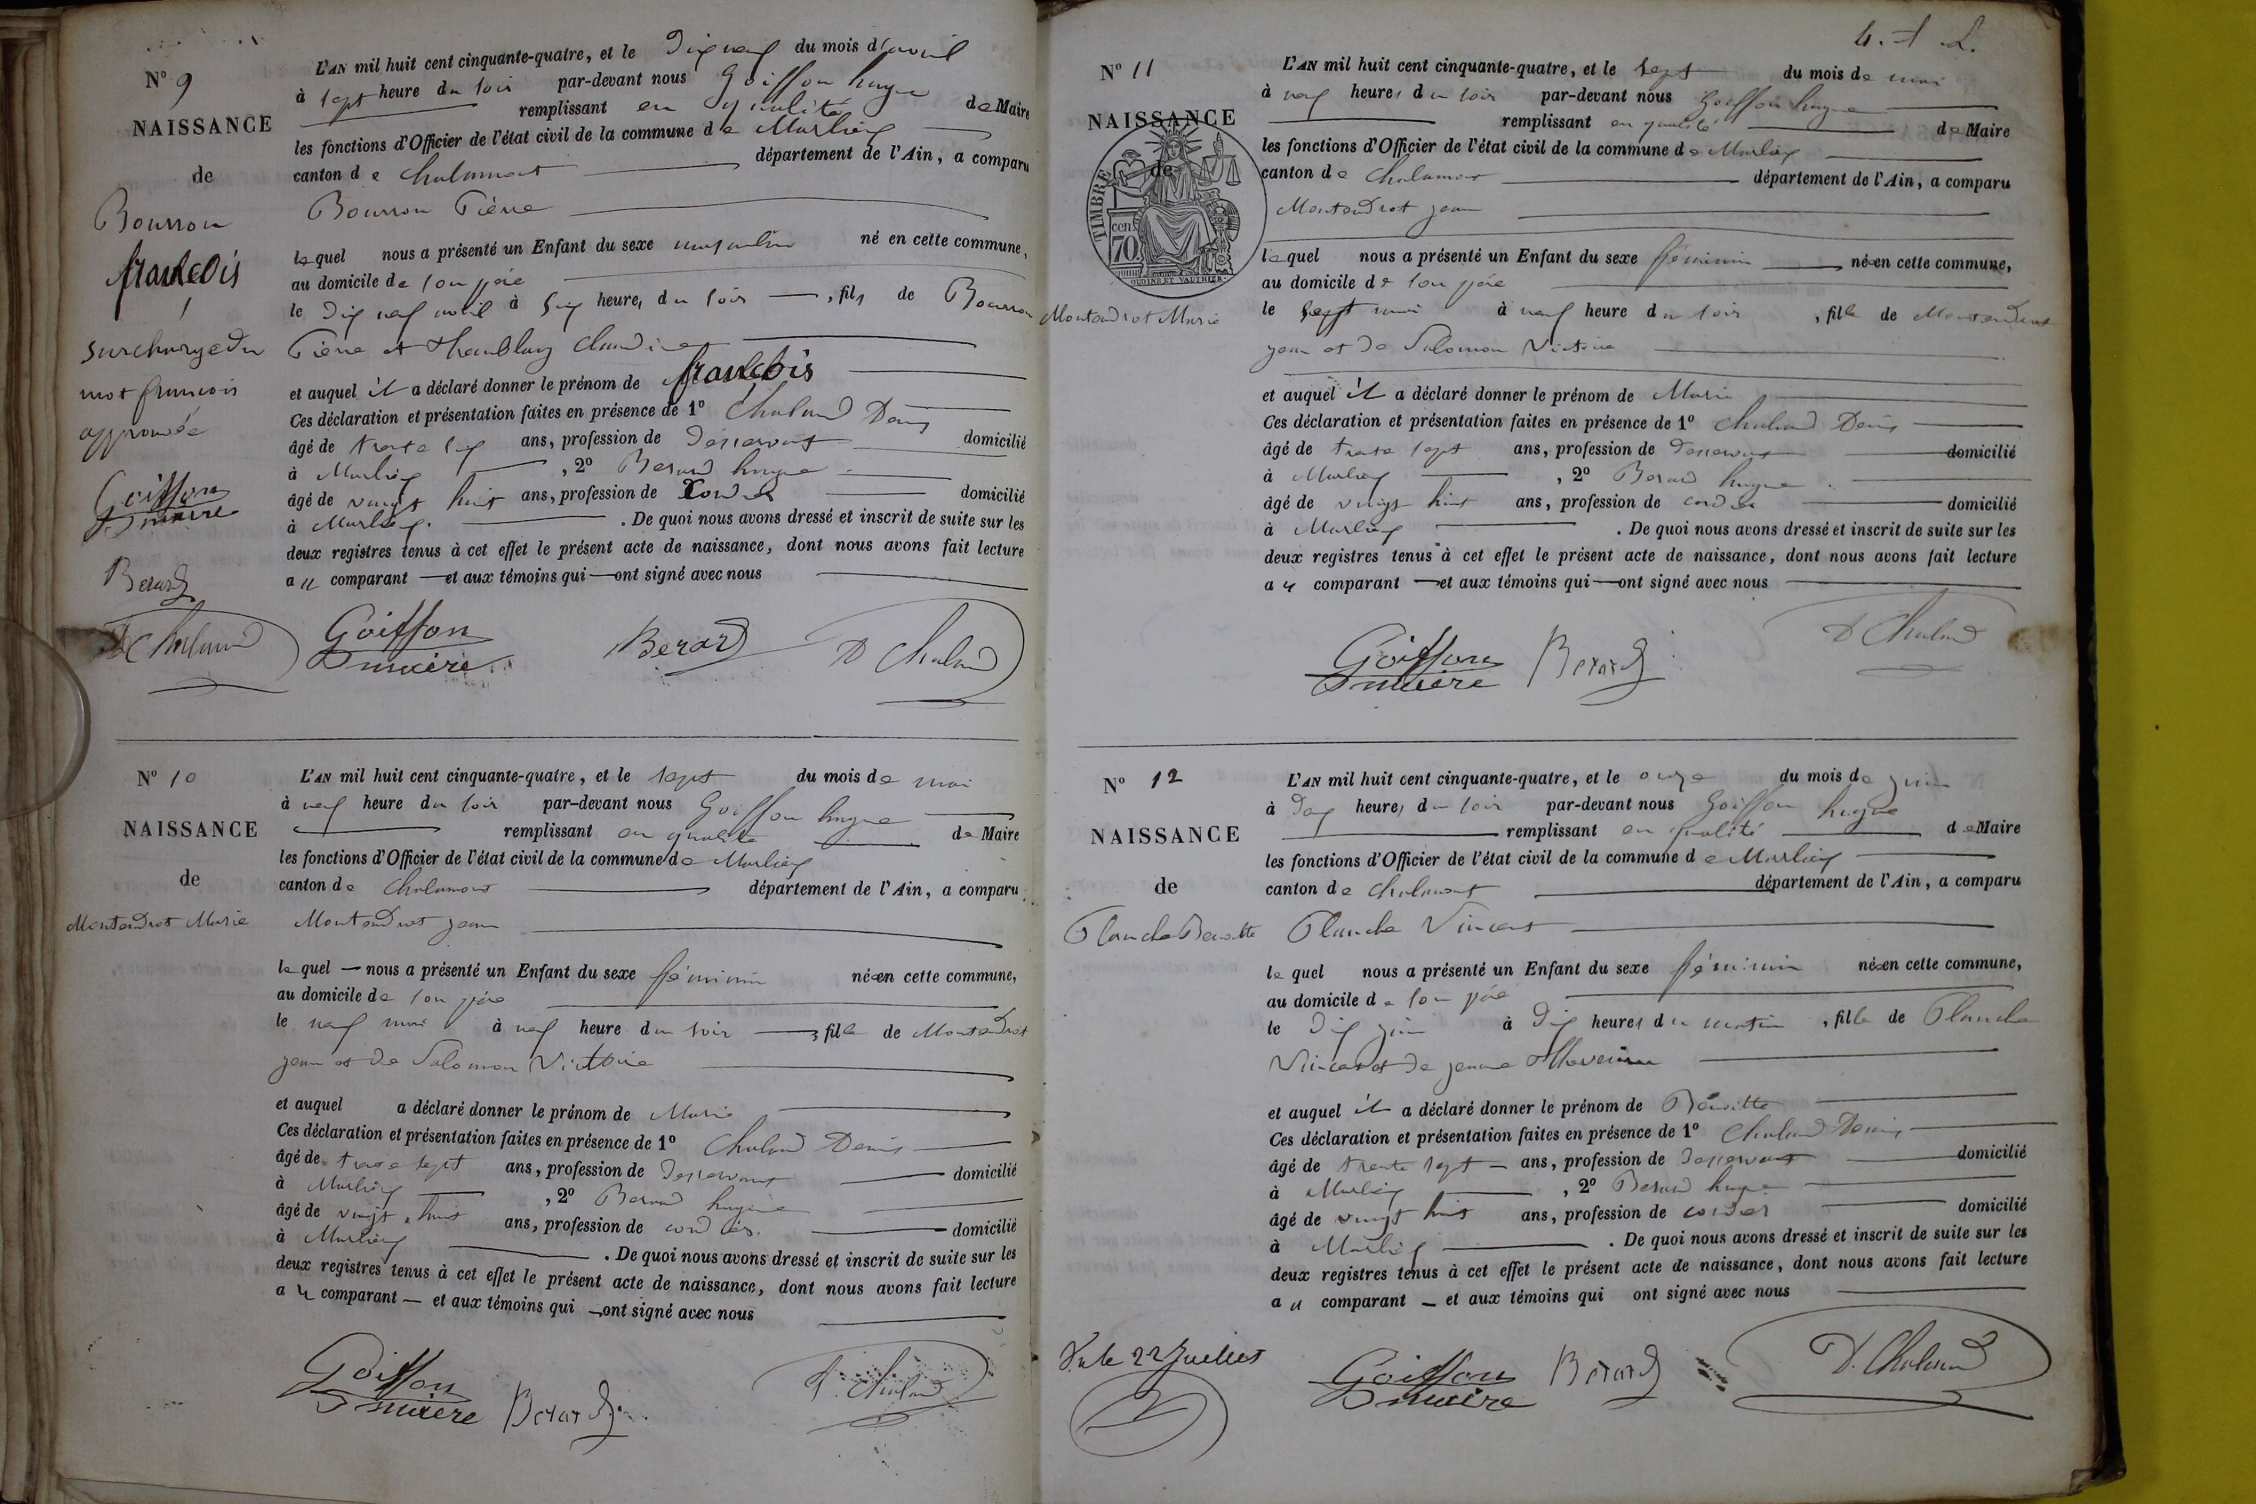 N° 9
NAISSANCE
de
Bourron
francois
surcharge du
mot francois
approuvée
Goiffon
maire
Berard
D Chaland
L'AN mil huit cent cinquante-quatre, et le Dix neuf du mois d'avril
à sept heure du soir par-devant nous Goiffon hugue
remplissant en qualité de Maire
les fonctions d'Officier de l'état civil de la commune de Marlieux
canton de Chalamont département de l'Ain, a comparu
Bourron Pierre
lequel nous a présenté un Enfant du sexe masculin né en cette commune,
au domicile de son père
le Dix neuf avril à six heures du soir , fils de Bourron
Pierre et Tremblay Claudine
et auquel il a déclaré donner le prénom de francois
Ces déclaration et présentation faites en présence de 1° Chaland Denis
âgé de trente six ans, profession de Desservant domicilié
à Marlieux , 2° Berard hugue
âgé de vingt huit ans, profession de cordier domicilié
à Marlieux . De quoi nous avons dressé et inscrit de suite sur les
deux registres tenus à cet effet le présent acte de naissance, dont nous avons fait lecture
au comparant et aux témoins qui ont signé avec nous
Goiffon maire Berard D Chaland
N° 10
NAISSANCE
de
Montandrot Marie
L'AN mil huit cent cinquante-quatre, et le sept du mois de mai
à neuf heure du soir par-devant nous Goiffon hugue
remplissant en qualité de Maire
les fonctions d'Officier de l'état civil de la commune de Marlieux
canton de Chalamont département de l'Ain, a comparu
Montandrot jean
lequel nous a présenté un Enfant du sexe féminin née en cette commune,
au domicile de son père
le neuf mai à neuf heure du soir , fille de Montandrot
jean et de Salomon Victoire
et auquel a déclaré donner le prénom de Marie
Ces déclaration et présentation faites en présence de 1° Chaland Denis
âgé de trente sept ans, profession de Desservant domicilié
à Marlieux , 2° Berard hugue
âgé de vingt huit ans, profession de cordier domicilié
à Marlieux . De quoi nous avons dressé et inscrit de suite sur les
deux registres tenus à cet effet le présent acte de naissance, dont nous avons fait lecture
au comparant et aux témoins qui ont signé avec nous
Goiffon maire Berard D. Chaland
4. 1 2.
N° 11
NAISSANCE
de
TIMBRE
70 cen
OUDINE ET VAUTHIER
Montandrot Marie
L'AN mil huit cent cinquante-quatre, et le sept du mois de mai
à neuf heures du soir par-devant nous Goiffon hugue
remplissant en qualité de Maire
les fonctions d'Officier de l'état civil de la commune de Marlieux
canton de Chalamont département de l'Ain, a comparu
Montandrot jean
lequel nous a présenté un Enfant du sexe féminin née en cette commune,
au domicile de son père
le sept mai à neuf heure du soir , fille de Montandrot
jean et de Salomon Victoire
et auquel il a déclaré donner le prénom de Marie
Ces déclaration et présentation faites en présence de 1° Chaland Denis
âgé de trente sept ans, profession de Desservant domicilié
à Marlieux , 2° Berard hugue
âgé de vingt huit ans, profession de cordier domicilié
à Marlieux . De quoi nous avons dressé et inscrit de suite sur les
deux registres tenus à cet effet le présent acte de naissance, dont nous avons fait lecture
au comparant et aux témoins qui ont signé avec nous
Goiffon maire Berard D Chaland
N° 12
NAISSANCE
de
Planche Benoitte
L'AN mil huit cent cinquante-quatre, et le onze du mois de juin
à Dix heures du soir par-devant nous Goiffon hugue
remplissant en qualité de Maire
les fonctions d'Officier de l'état civil de la commune de Marlieux
canton de Chalamont département de l'Ain, a comparu
Planche Vincent
lequel nous a présenté un Enfant du sexe féminin née en cette commune,
au domicile de son père
le Dix juin à Dix heures du matin , fille de Planche
Vincent et de jeanne Thevenin
et auquel il a déclaré donner le prénom de Benoitte
Ces déclaration et présentation faites en présence de 1° Chaland Denis
âgé de trente sept ans, profession de Desservant domicilié
à Marlieux , 2° Berard hugue
âgé de vingt huit ans, profession de cordier domicilié
à Marlieux . De quoi nous avons dressé et inscrit de suite sur les
deux registres tenus à cet effet le présent acte de naissance, dont nous avons fait lecture
au comparant et aux témoins qui ont signé avec nous
Vu le 22 Juillet
Goiffon maire Berard D. Chaland